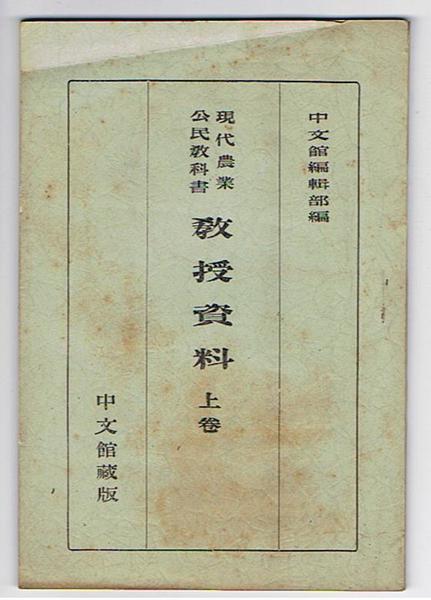 中文館編輯部編
現代農業
公民教科書
教授資料上卷
中文館藏版